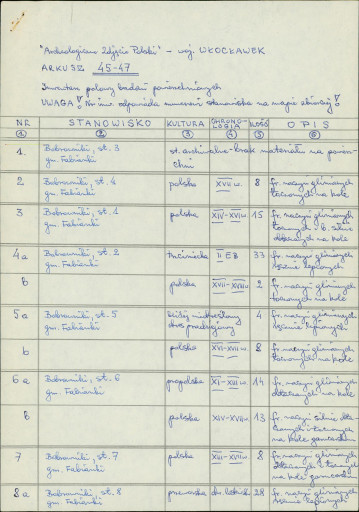 "Archeologiczne Zdjęcie Polski" - woj. WŁOCŁAWEK
ARKUSZ 45-47
Inwentarz polowy badań powierzchniowych
UWAGA! Nr inw. odpowiada numerowi stanowiska na mapie zbiorczej!
NR STANOWISKO KULTURA CHRONOLOGIA ILOŚĆ OPIS
1 2 3 4 5 6
1. Bobrowniki, st. 3 st. archiwalne - brak materiału na powierzchni
gm. Fabianki
2 Bobrowniki, st. 4 polska XVII w. 8 fr. naczyń glinianych
gm. Fabianki toczonych na kole
3 Bobrowniki, st. 1 polska XIV-XVI w. 15 fr. naczyń glinianych
gm. Fabianki toczonych i silnie
obtaczanych na kole
4a Bobrowniki, st. 2 trzciniecka II EB 33 fr. naczyń glinianych
gm. Fabianki ręcznie lepionych
b polska XVII-XVIII w. 2 fr. naczyń glinianych
toczonych na kole
5a Bobrowniki, st. 5 bliżej nieokreślony 4 fr. naczyń glinianych
gm. Fabianki okres pradziejowy ręcznie lepionych
b polska XVI-XVII w. 8 fr. naczyń glinianych
toczonych na kole
6a Bobrowniki, st. 6 prapolska XI-XIII w. 14 fr. naczyń glinianych
gm. Fabianki obtaczanych na kole
b polska XIV-XVII w. 13 fr. naczyń silnie
i toczonych
na kole garncarskim
7 Bobrowniki, st. 7 polska 8 fr. naczyń glinianych
gm. Fabianki obtaczanych i toczonych
na kole
garncarskim
8a Bobrowniki, st. 8 przeworska ok. lateński 28 fr. naczyń glinianych
gm. Fabianki ręcznie lepionych